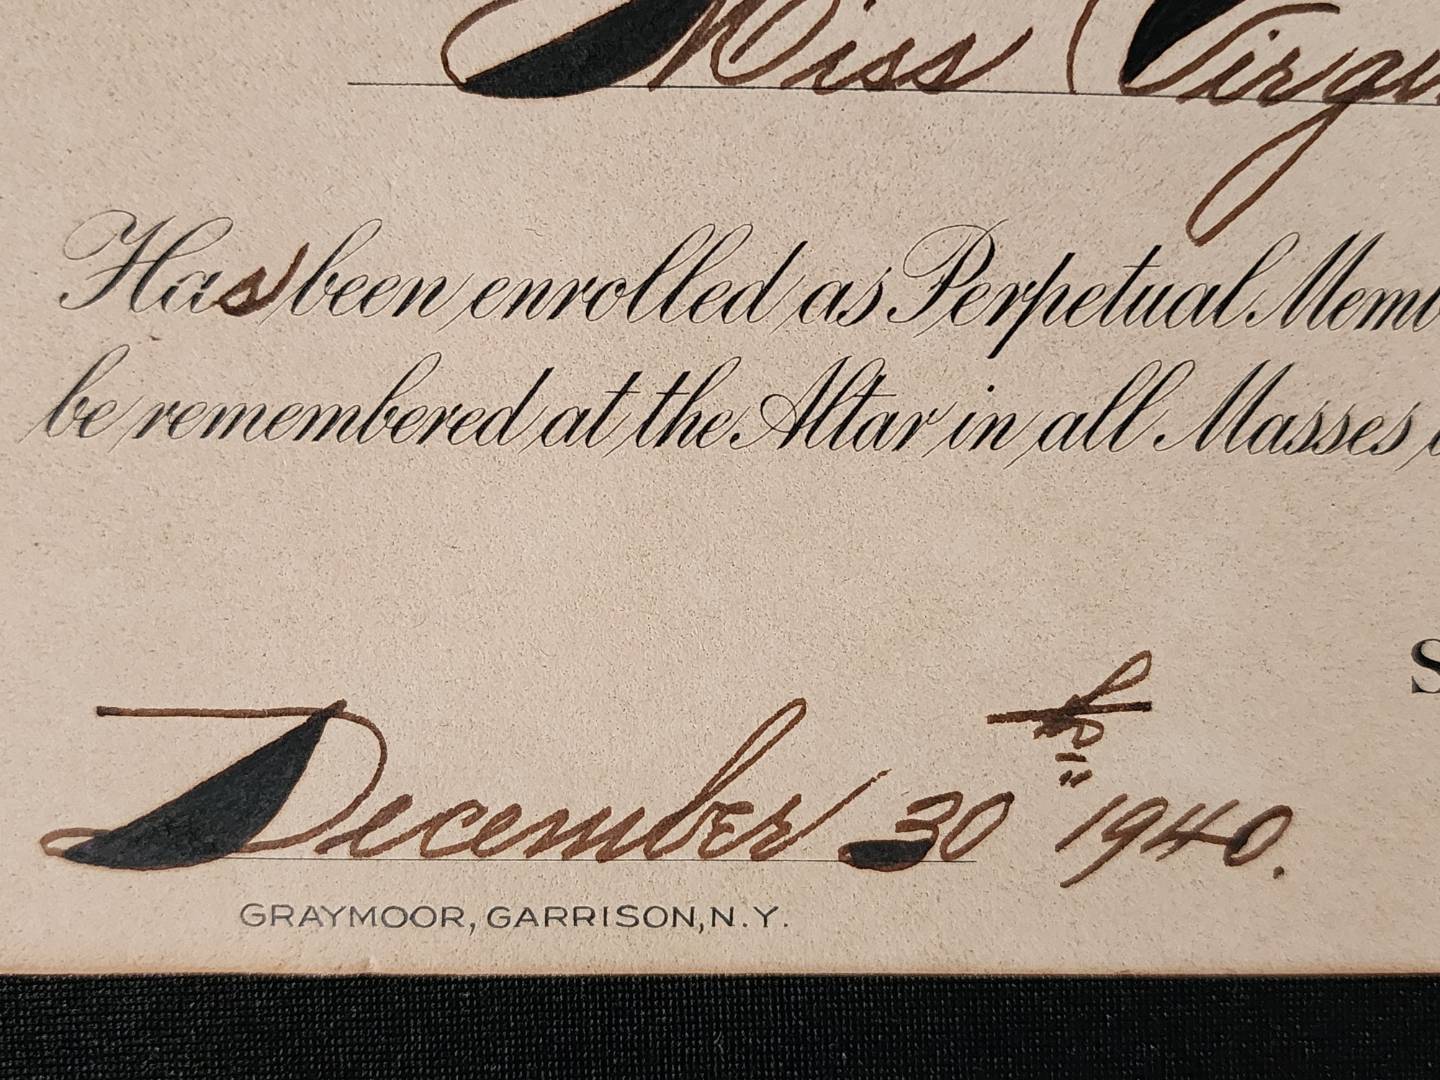 Miss Virgin
Has been enrolled as Perpetual Memb
be remembered at the Altar in all Masses
S
December 30th 1940.
GRAYMOOR, GARRISON, N.Y.